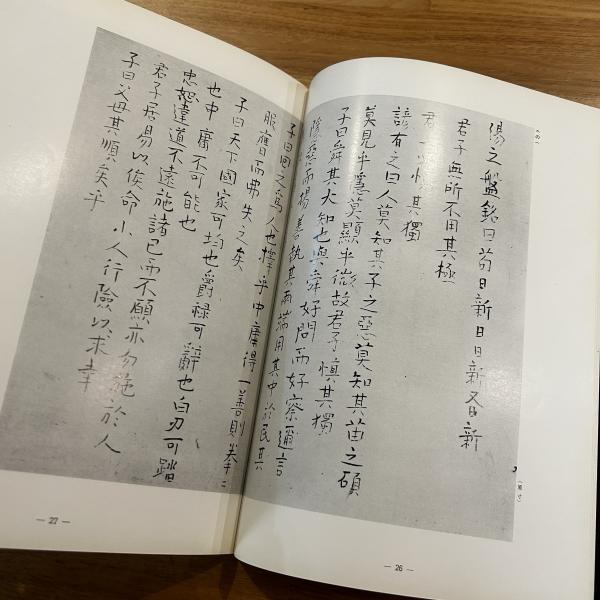 湯之盤銘曰苟日新日日新又日新
君子無所不用其極
君 其獨
諺有之曰人莫知其子之惡莫知其苗之碩
莫見乎隱莫顯乎微故君子慎其獨
子曰舜其大知也與舜好問而好察邇言
隱惡而揚善執其兩端用其中於民其
(原寸)
— 26 —
子曰回之為人也擇乎中庸得一善則拳〻
服膺而弗失之矣
子曰天下國家可均也爵禄可辭也白刃可踏
也中庸不可能也
忠恕違道不遠施諸己而不願亦勿施於人
君子居易以俟命小人行險以求幸
子曰父母其順矣乎
— 27 —